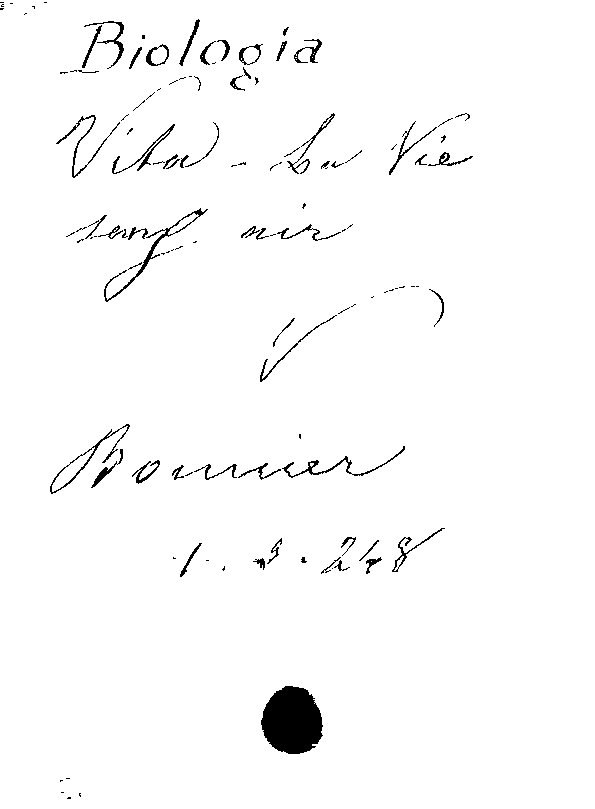 Biologia
Vita - La Vie
sans air
Bonnier
1. 3. 248